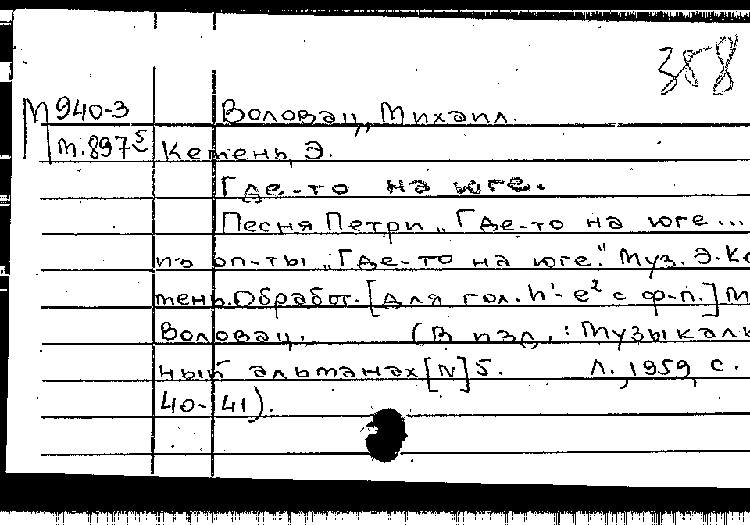 388
М 940-3 Воловац, Михаил.
м.897⁵ Кемень, Э.
Где-то на юге.
Песня Петри „Где-то на юге...
из оп-ты „Где-то на юге." Муз. Э. Ке
мень. Обработ. [для гол. h¹- e² с ф-п.] М
Воловац. (В изд.: Музыкаль
ный альманах [N] 5. Л., 1959, с.
40-41).